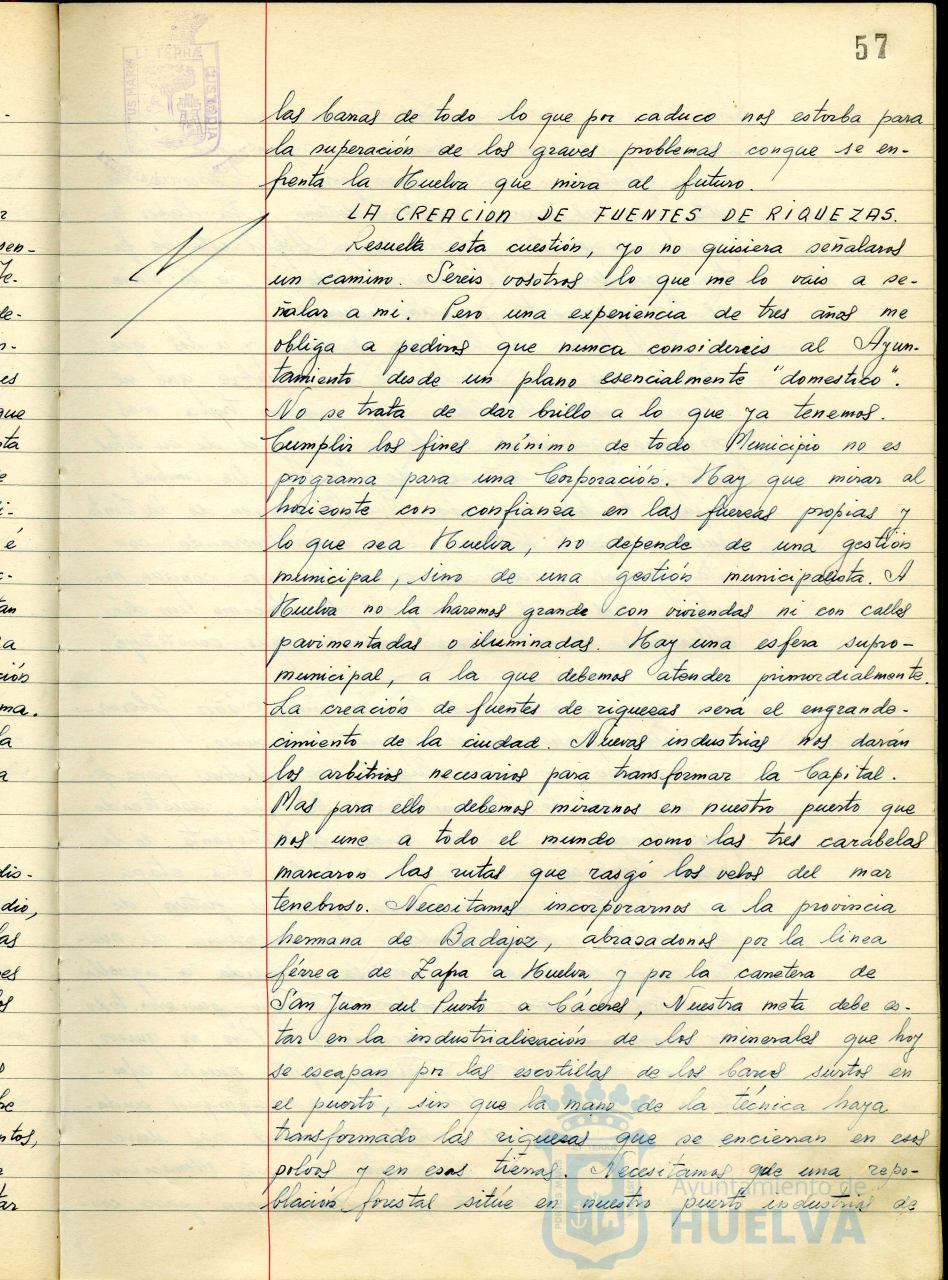 57
las barras de todo lo que por caduco nos estorba para
la superación de los graves problemas conque se en-
frenta la Huelva que mira al futuro.
LA CREACION DE FUENTES DE RIQUEZAS.
Resuelta esta cuestión, yo no quisiera señalaros
un camino. Sereis vosotros lo que me lo vais a se-
ñalar a mi. Pero una experiencia de tres años me
obliga a pediros que nunca considereis al Ayun-
tamiento desde un plano esencialmente "domestico".
No se trata de dar brillo a lo que ya tenemos.
Cumplir los fines mínimo de todo Municipio no es
programa para una Corporación. Hay que mirar al
horizonte con confianza en las fuerzas propias y
lo que sea Huelva, no depende de una gestión
municipal, sino de una gestión municipalista. A
Huelva no la haremos grande con viviendas ni con calles
pavimentadas o iluminadas. Hay una esfera supro-
municipal, a la que debemos atender primordialmente.
La creación de fuentes de riquezas será el engrande-
cimiento de la ciudad. Nuevas industrias nos darán
los arbitrios necesarios para transformar la Capital.
Mas para ello debemos mirarnos en nuestro puerto que
nos une a todo el mundo como las tres carabelas
marcaron las rutas que rasgó los velos del mar
tenebroso. Necesitamos incorporarnos a la provincia
hermana de Badajoz, abrazadonos por la linea
férrea de Zafra a Huelva y por la carretera de
San Juan del Puerto a Cáceres, Nuestra meta debe es-
tar en la industrialización de los minerales que hoy
se escapan por las escotillas de los barcos surtos en
el puerto, sin que la mano de la técnica haya
transformado las riquezas que se encierran en esos
polvos y en esas tierras. Necesitamos que una repo-
blación forestal sitúe en nuestro puerto industria de
Ayuntamiento de
HUELVA